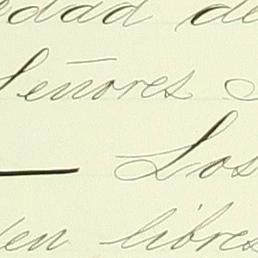 edad de
Señores
— Los
en libres